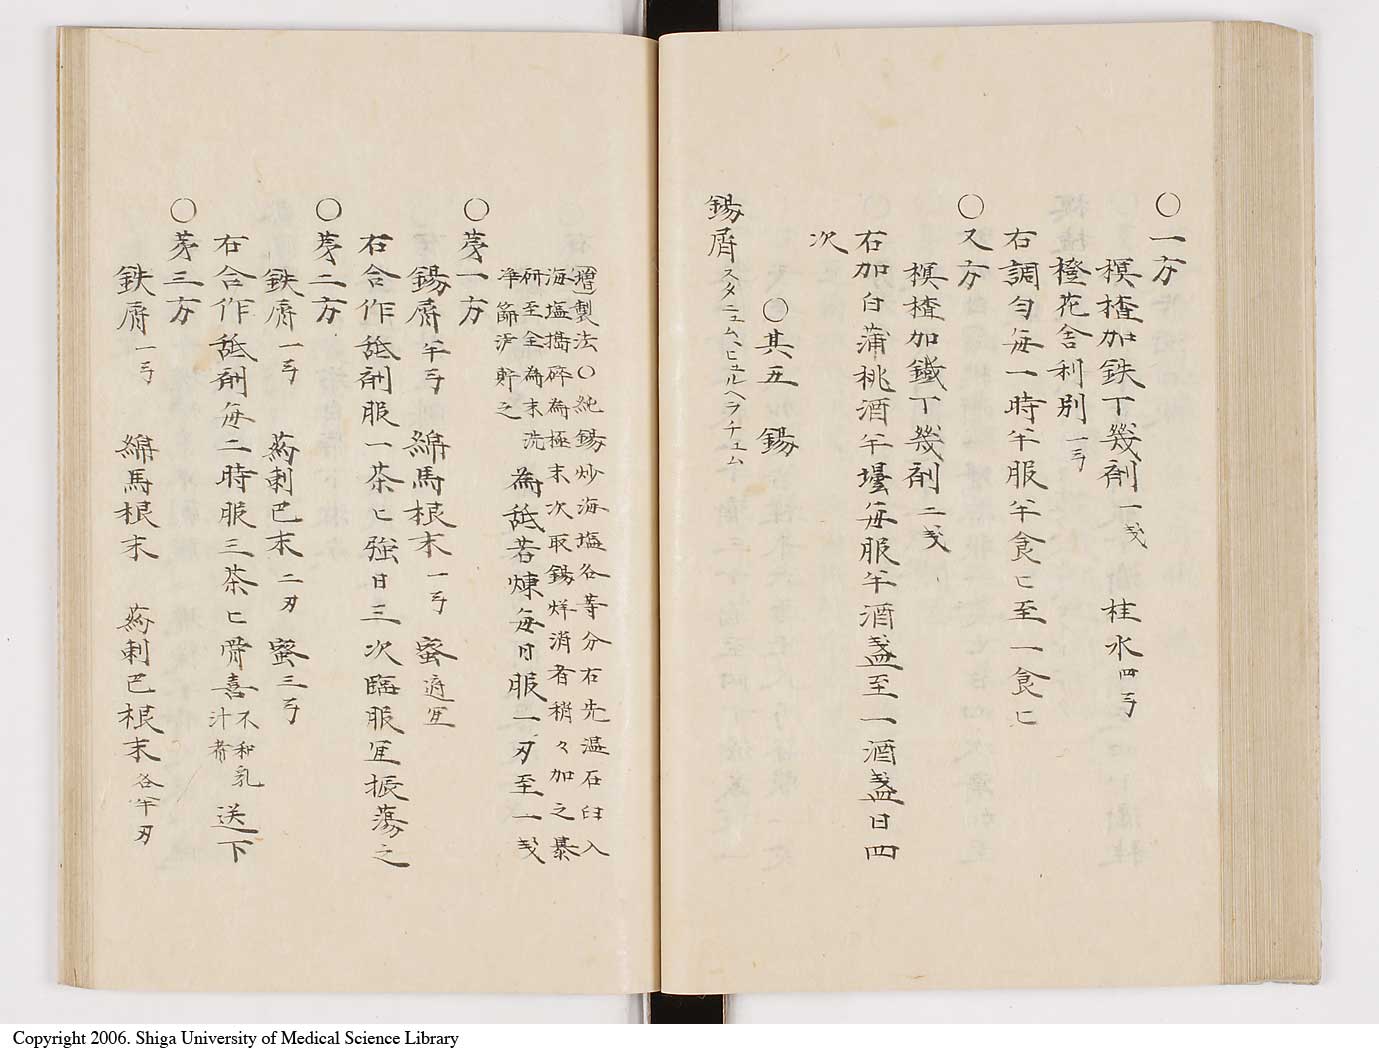 〇一方
榠樝加鉄丁幾剤一戔　桂水四弓
橙花舎利別一弓
右調匀毎一時半服半食匕至一食匕
〇又方
榠樝加鐵丁幾剤二戔
右加白蒲桃酒半壜毎服半酒盞至一酒盞日四
次
〇其五　錫
錫屑スタニュム、ヒュルヘラチュム
增製法〇純錫炒海塩各等分右先温石臼入
海塩搗碎為極末次取錫烊消者稍々加之暴
研至全為末洗
净篩沪貯之
為舐若煉毎日服一刄至一戔
〇苐一方
錫屑半弓　綿馬根末一弓　蜜適宜
右合作舐剤服一茶匕強日三次臨服宜振蕩之
〇苐二方
鉄屑一弓　葯剌巴末二刄　蜜三弓
右合作舐剤毎二時服三茶匕骨喜不和乳汁者送下
〇苐三方
鉄屑一弓　綿馬根末　葯剌巴根末各半刄
Copyright 2006. Shiga University of Medical Science Library